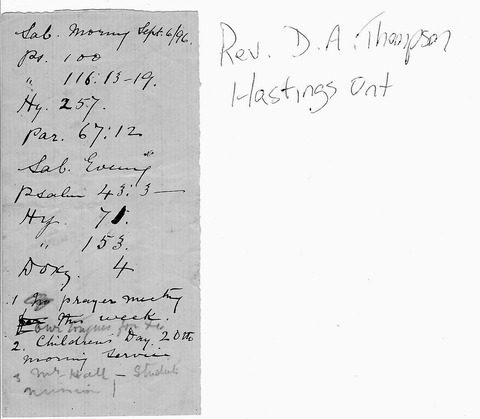 Sab. Morng Sept. 6/96.
Ps. 100
" 116:13-19.
Hy. 257.
Par. 67:12
Sab. Evening
Psalm 43:3 —
Hy. 71.
" 153.
Doxy. 4
1 No prayer meeting
this week.
2. Childrens Day 20th
morning service
3 Mr Hall - Students
mission
Rev. D. A. Thompson
Hastings Ont